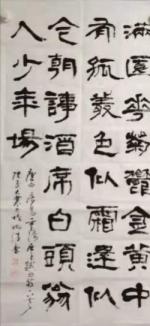 滿園花菊鬱金黃中
有孤叢色似霜還似
今朝詩酒席白頭翁
入少年場